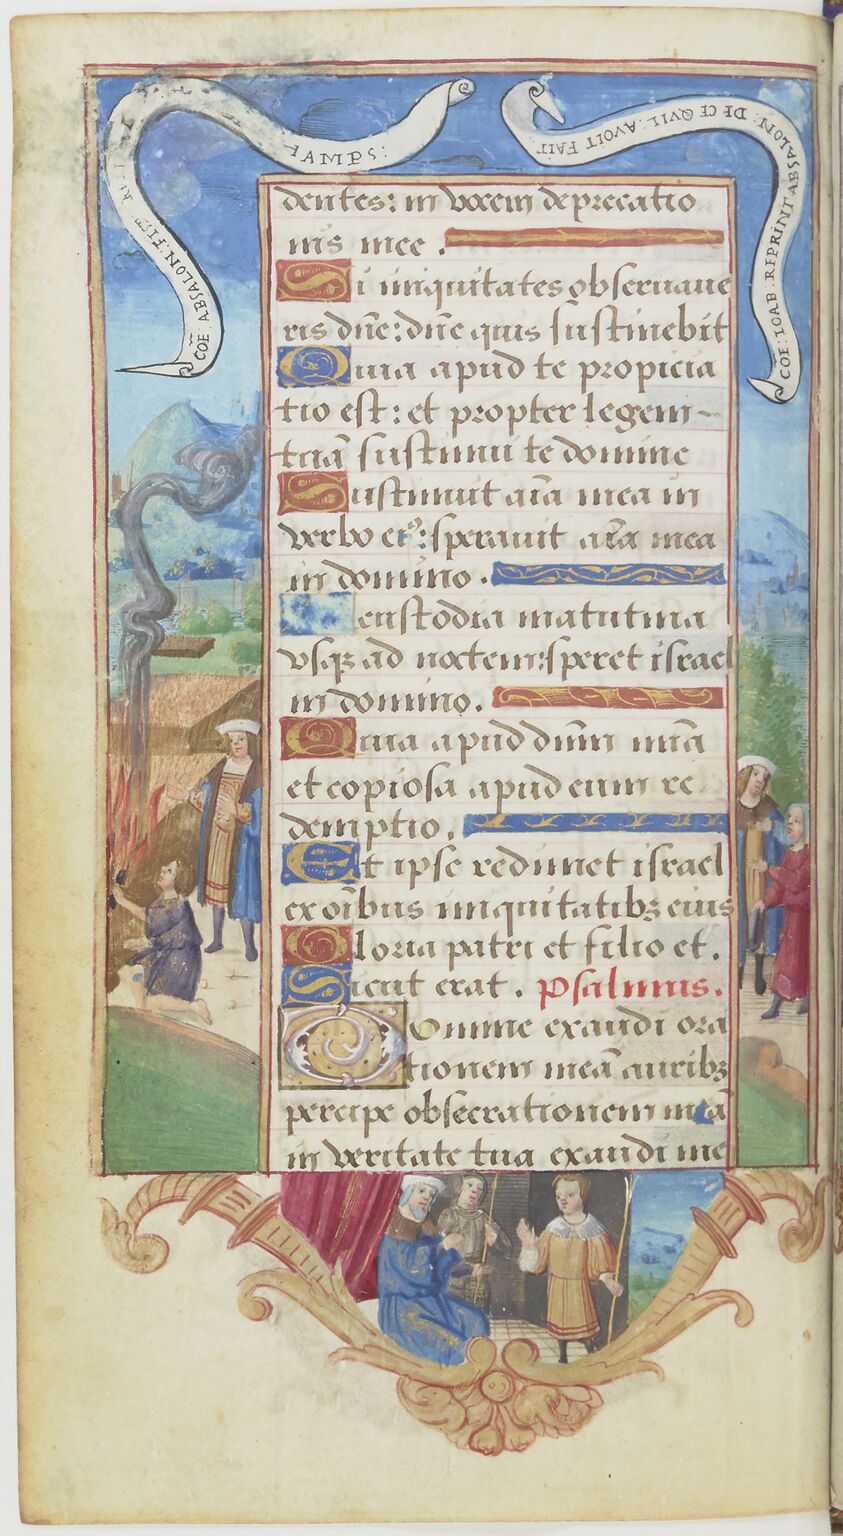 COE: ABSALON: FIT
SAMVE:
COE: IOAB: REPRINT ABSALON: DE CE QVIL: AVOIT FAIT
dentes: in vocem deprecatio
nis mee.
Si iniquitates obseruaue
ris dñe: dñe quis sustinebit
Quia apud te propicia
tio est: et propter legem
tuã sustinui te domine
Sustinuit aĩa mea in
verbo eiꝰ: sperauit aĩa mea
in domino.
custodia matutina
vsqꝫ ad noctem: speret israel
in domino.
Quia apud dñm miã
et copiosa apud eum re
demptio.
Et ipse redimet israel
ex oĩbus iniquitatibꝫ eius
Gloria patri et filio et.
Sicut erat. Psalmus.
Domine exaudi ora
tionem meã auribꝫ
percipe obsecrationem meã
in veritate tua exaudi me